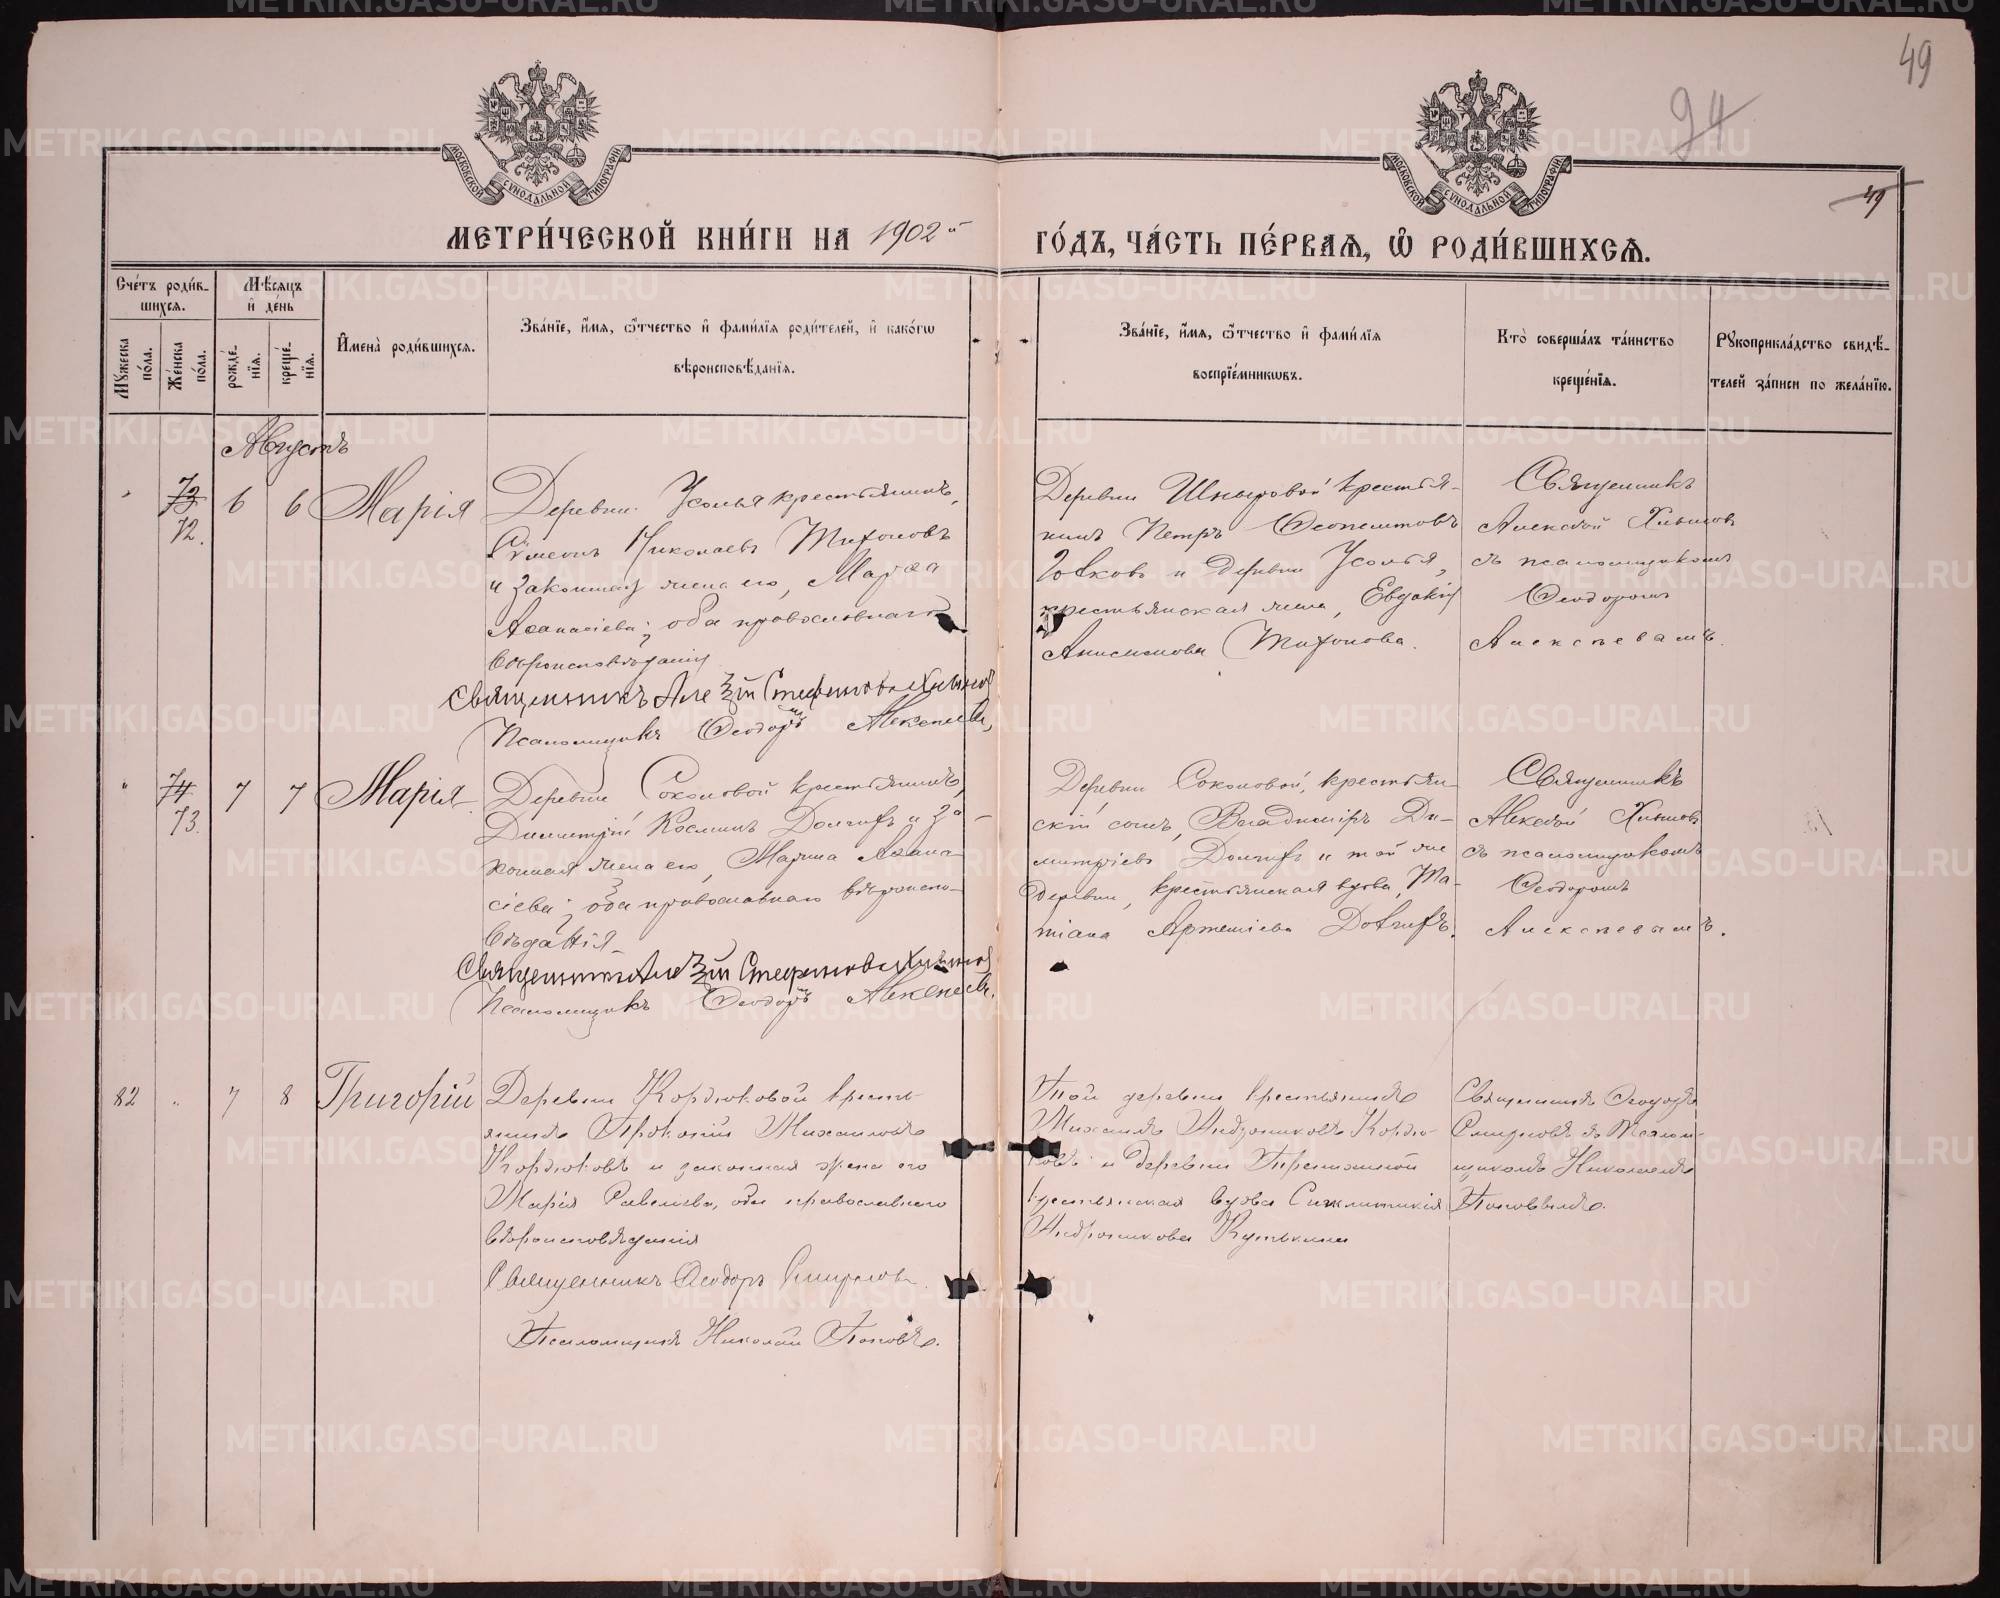 49
94
49
МОСКОВСКОЙ СУНОДАЛЬНОЙ ТИПОГРАФІИ
МОСКОВСКОЙ СУНОДАЛЬНОЙ ТИПОГРАФІИ
МЕТРИ́ЧЕСКОЙ КНИ́ГИ НА 1902й ГО́ДЪ, ЧА́СТЬ ПЕ́РВАѦ, Ѡ РОДИ́ВШИХСѦ.
Сче́тъ роди́в-
шихсѧ.
Мꙋ́жеска по́ла.
Же́нска по́ла.
Мѣ́сѧцъ
и҆ де́нь
рожде́-
нїѧ.
креще́-
нїѧ.
И҆мена̀ роди́вшихсѧ.
Зва́нїе, и҆́мѧ, ѻ҆́тчество и҆ фами́лїѧ роди́телей, и҆ како́гѡ
вѣроисповѣ́данїѧ.
Зва́нїе, и҆́мѧ, ѻ҆́тчество и҆ фами́лїѧ
воспрїе́мникѡвъ.
Кто̀ соверша́лъ та́инство
креще́нїѧ.
Рꙋкоприкла́дство свидѣ́-
телей за́писи по жела́нїю.
Августъ
73
72.
6
6
Марія
Деревни Усолья крестьянинъ,
Сѵмеонъ Николаевъ Тихоновъ
и законная жена его, Марѳа
Аѳанасіева; оба православнаго
вѣроисповѣданія
Священникъ Алексій Стефановъ Хлыновъ
Псаломщикъ Ѳеодоръ Алексѣевъ,
Деревни крестья-
нинъ Петръ
и деревни Усолья,
крестьянская жена, Евдокія
Анисимова Тихонова.
Священникъ
Алексѣй Хлыновъ
съ псаломщикомъ
Ѳеодоромъ
Алексѣевымъ.
74
73.
7
7
Марія
Деревни Соколовой крестьянинъ,
Димитрій Косминъ Долгихъ и за-
конная жена его, Марина Аѳана-
сіева; оба православнаго вѣроиспо-
вѣданія
Священникъ Алексій Стефановъ Хлыновъ
Псаломщикъ Ѳеодоръ Алексѣевъ.
Деревни Соколовой, крестьян-
скій сынъ, Владиміръ Ди-
митріевъ Долгихъ и той же
деревни, крестьянская вдова, Та-
тіана Артеміева Долгихъ.
Священникъ
Алексѣй Хлыновъ
съ псаломщикомъ
Ѳеодоромъ
Алексѣевымъ.
82
7
8
Григорій
Деревни Кордюковой кресть-
янинъ Прокопій Михаиловъ
Кордюковъ и законная жена его
Марія Савелiева, оба православнаго
вѣроисповѣданія
Священникъ Ѳеодоръ Смирновъ.
Псаломщикъ Николай Поповъ.
Той деревни крестьянинъ
Михаилъ Андрониковъ Кордю-
ковъ и деревни
крестьянская вдова Синклитикія
Андроникова Кутькина
Священникъ Ѳеодоръ
Смирновъ съ Псалом-
щикомъ Николаемъ
Поповымъ.